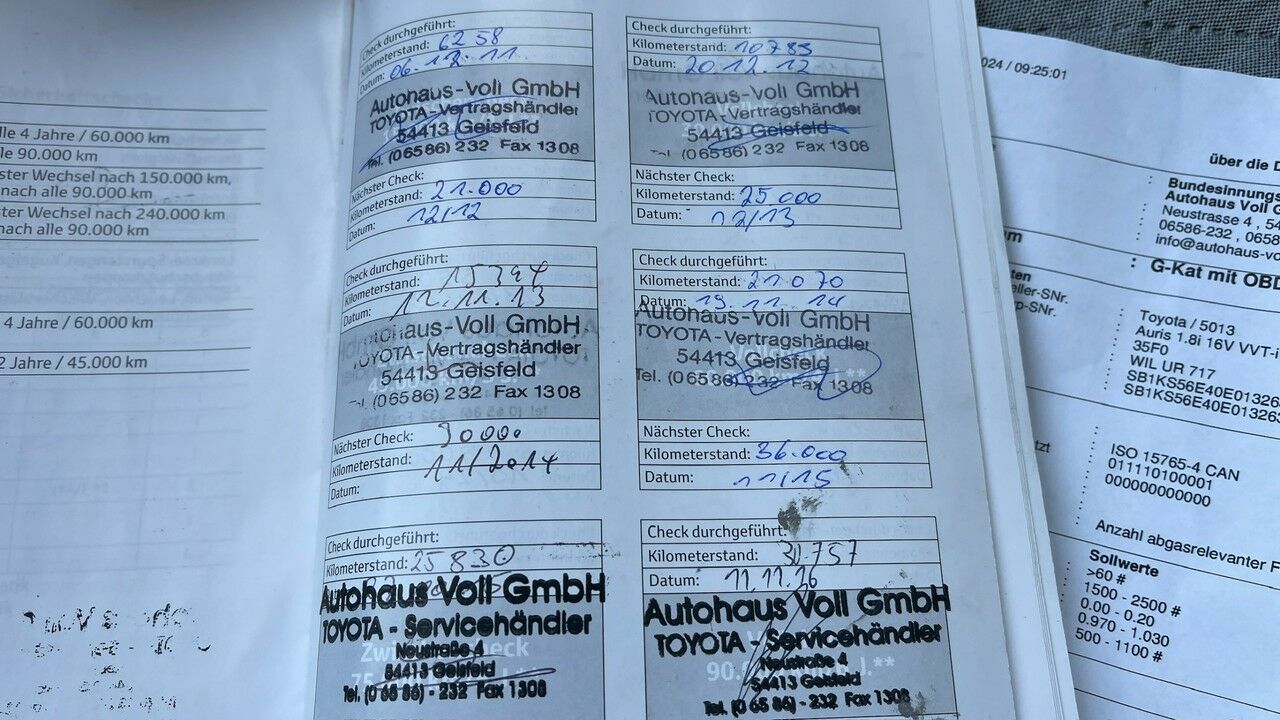 lle 4 Jahre / 60.000 km
lle 90.000 km
ster Wechsel nach 150.000 km,
nach alle 90.000 km
ster Wechsel nach 240.000 km
nach alle 90.000 km
4 Jahre / 60.000 km
2 Jahre / 45.000 km
Check durchgeführt:
Kilometerstand: 6258
Datum: 06.12.11
Autohaus-Voll GmbH
TOYOTA-Vertragshändler
54413 Geisfeld
Tel. (06586) 232 Fax 1308
Nächster Check:
Kilometerstand: 21.000
Datum: 12/12
Check durchgeführt:
Kilometerstand: 10785
Datum: 20.12.12
Autohaus-Voll GmbH
TOYOTA-Vertragshändler
54413 Geisfeld
(06586) 232 Fax 1308
Nächster Check:
Kilometerstand: 25.000
Datum: 12/13
Check durchgeführt:
Kilometerstand: 15394
Datum: 12.11.13
Autohaus-Voll GmbH
TOYOTA-Vertragshändler
54413 Geisfeld
(06586) 232 Fax 1308
Nächster Check:
Kilometerstand: 30000
Datum: 11/2014
Check durchgeführt:
Kilometerstand: 21.070
Datum: 19.11.14
Autohaus-Voll GmbH
TOYOTA-Vertragshändler
54413 Geisfeld
Tel. (06586) 232 Fax 1308
Nächster Check:
Kilometerstand: 36.000
Datum: 11/15
Check durchgeführt:
Kilometerstand: 25830
Autohaus Voll GmbH
TOYOTA - Servicehändler
Neustraße 4
54413 Geisfeld
Tel. (0 65 86) - 232 Fax 1308
Check durchgeführt:
Kilometerstand: 30757
Datum: 11.11.16
Autohaus Voll GmbH
TOYOTA - Servicehändler
Neustraße 4
54413 Geisfeld
Tel. (0 65 86) - 232 Fax 1308
024 / 09:25:01
über die D
: Bundesinnungs
Autohaus Voll G
Neustrasse 4 , 54
06586-232 , 0658
info@autohaus-vo
: G-Kat mit OBD
ten
eller-SNr.
p-SNr.
: Toyota / 5013
: Auris 1.8i 16V VVT-i
: 35F0
: WIL UR 717
: SB1KS56E40E01326
: SB1KS56E40E013263
tzt
: ISO 15765-4 CAN
: 01110100001
: 000000000000
Anzahl abgasrelevanter F
Sollwerte
: >60 #
: 1500 - 2500 #
: 0.00 - 0.20
: 0.970 - 1.030
: 500 - 1100 #